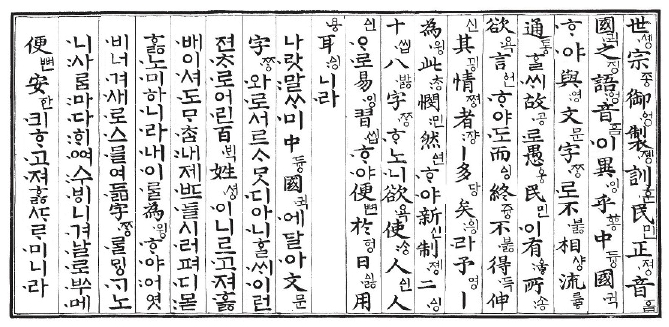 世솅宗종御엉製졩訓훈民민正졍音음
國귁之징語엉音ᅙᅳᆷ이異잉乎ᅘᅩᆼ中듕國귁
ᄒᆞ야與영文문字ᄍᆞᆼ로不부ᇙ相샹流륳
通통ᄒᆞᆯᄊᆡ故공로愚웅民민이有우ᇢ所송
欲욕言언ᄒᆞ야도而ᅀᅵᆼ終즁不부ᇙ得득伸
신其끵情쪙者쟝ㅣ多당矣ᅌᅴᆼ라予영ㅣ
爲윙此ᄎᆞᆼ憫민然ᅀᅧᆫᄒᆞ야新신制졩二ᅀᅵᆼ
十씹八바ᇙ字ᄍᆞᆼᄒᆞ노니欲욕使ᄉᆞᆼ人ᅀᅵᆫ人
ᅀᅵᆫᄋᆞ로易잉習씹ᄒᆞ야便뼌於ᅙᅥᆼ日ᅀᅵᇙ用
용耳ᅀᅵᆼ니라
나랏말ᄊᆞ미中듕國귁에달아文문
字ᄍᆞᆼ와로서르ᄉᆞᄆᆞᆺ디아니ᄒᆞᆯᄊᆡ이런
젼ᄎᆞ로어린百ᄇᆡᆨ姓셩이니르고져호ᇙ
배이셔도ᄆᆞᄎᆞᆷ내제ᄠᅳ들시러펴디몯
ᄒᆞᇙ노미하니라내이ᄅᆞᆯ爲윙ᄒᆞ야어엿
비너겨새로스믈여듧字ᄍᆞᆼᄅᆞᆯᄆᆡᇰᄀᆞ노
니사ᄅᆞᆷ마다ᄒᆡᅇᅧ수ᄫᅵ니겨날로ᄡᅮ메
便뼌安ᅙᅡᆫ킈ᄒᆞ고져ᄒᆞᇙᄯᆞᄅᆞ미니라